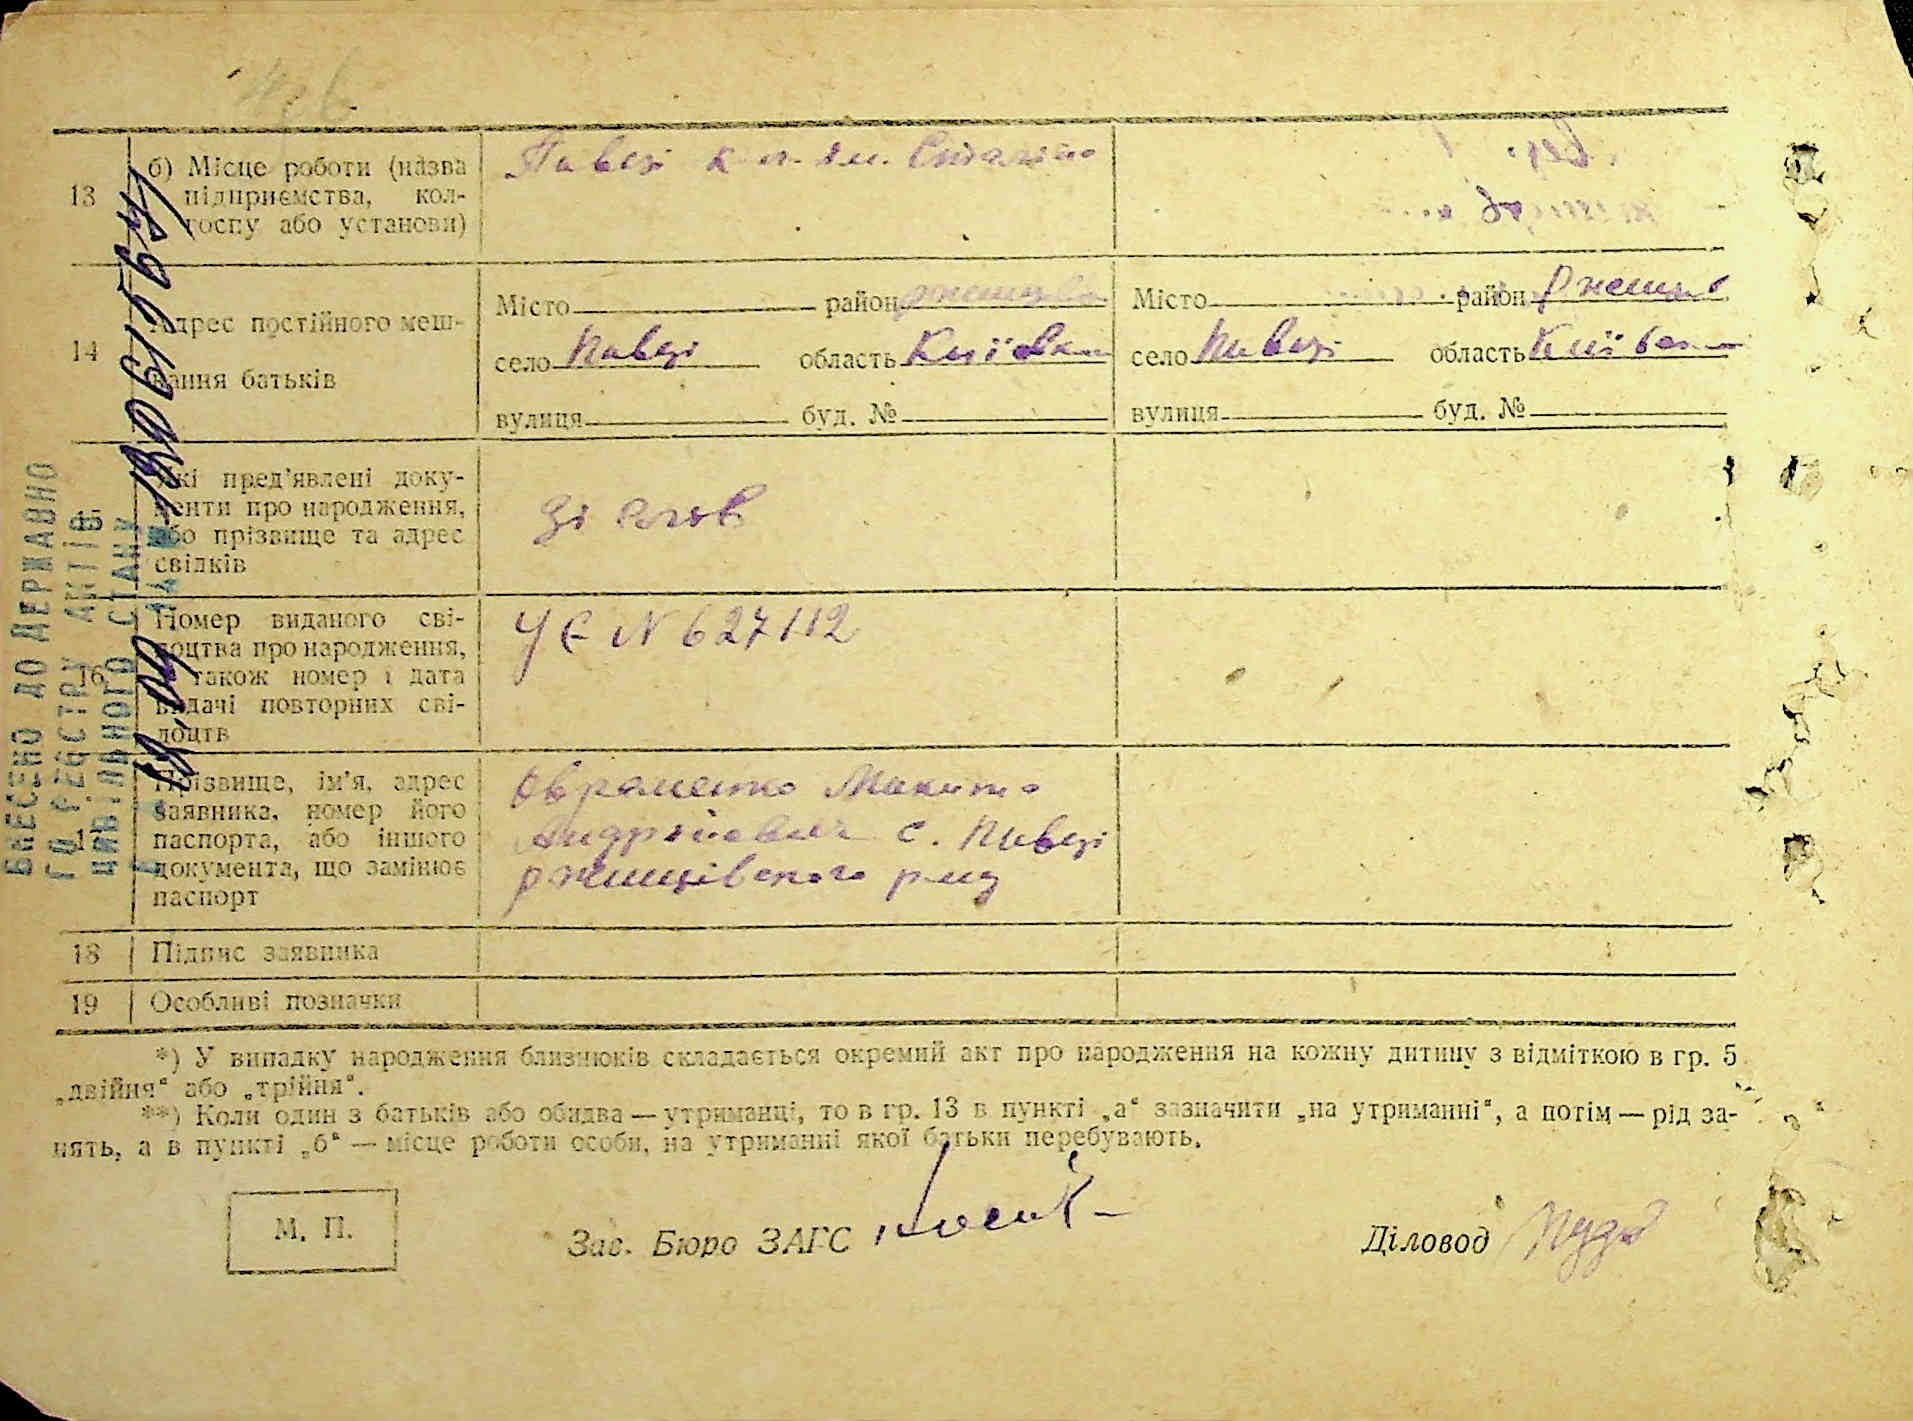 13
б) Місце роботи (назва
підприємства, кол-
госпу або установи)
Півці к-п. ім. Сталіна
14
Адрес постійного меш-
кання батьків
Місто район Ржищів
село Півці область Київськ
вулиця буд. №
Місто район Ржищів
село Півці область Київськ
вулиця буд. №
15
Які пред'явлені доку-
менти про народження,
або прізвище та адрес
свідків
16
Номер виданого сві-
доцтва про народження,
а також номер і дата
видачі повторних сві-
доцтв
УЄ N 627112
17
Прізвище, ім'я, адрес
заявника, номер його
паспорта, або іншого
документа, що замінює
паспорт
Овраменко Микита
Андрійович с. Півці
Ржищівського
18
Підпис заявника
19
Особливі позначки
*) У випадку народження близнюків складається окремий акт про народження на кожну дитину з відміткою в гр. 5
„двійня“ або „трійня“.
**) Коли один з батьків або обидва — утриманці, то в гр. 13 в пункті „а“ зазначити „на утриманні“, а потім — рід за-
нять, а в пункті „б“ — місце роботи особи, на утриманні якої батьки перебувають.
М. П.
Зав. Бюро ЗАГС
Діловод
ВНЕСЕНО ДО ДЕРЖАВНО
ГО РЕЄСТРУ АКТІВ
ЦИВІЛЬНОГО СТАНУ